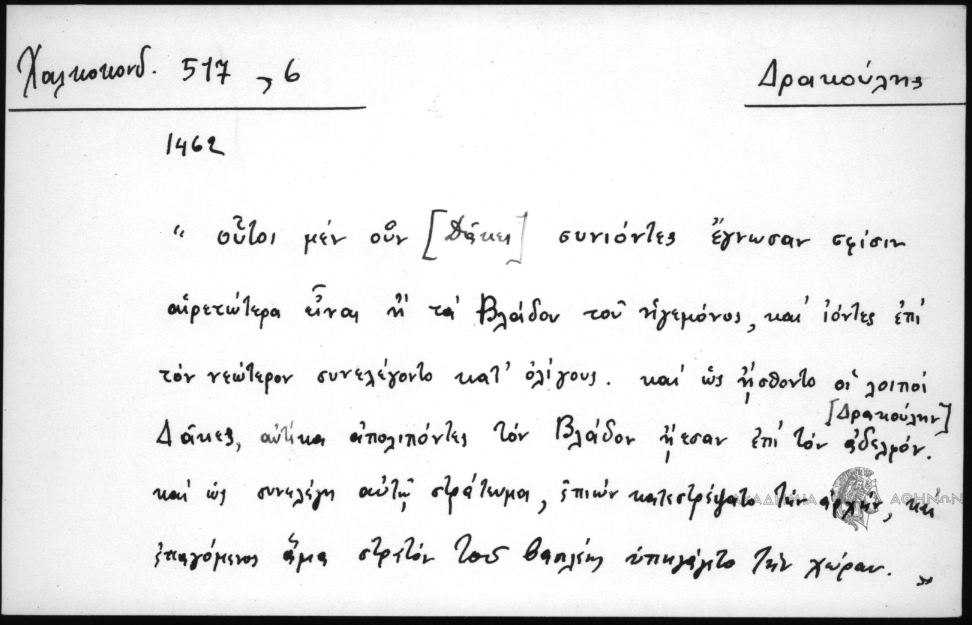 Χαλκοκονδ. 517, 6
Δρακούλης
1462
“ οὗτοι μέν οὖν [Δᾶκες] συνιόντες ἔγνωσαν σφίσιν
αἱρετώτερα εἶναι ἢ τά Βλάδου τοῦ ἡγεμόνος, καί ἰόντες ἐπί
τόν νεώτερον συνελέγοντο κατ’ ὀλίγους. καί ὡς ᾔσθοντο οἱ λοιποί
[Δρακούλην]
Δᾶκες, αὐτίκα ἀπολιπόντες τόν Βλάδον ᾔεσαν ἐπί τόν ἀδελφόν.
καί ὡς συνελέγη αὐτῷ στράτευμα, ἐπιών κατεστρέψατο τήν ἀρχήν, καί
ἐπαγόμενος ἅμα στρατόν τοῦ βασιλέως ὑπηγάγετο τήν χώραν. ”
ΑΚΑΔΗΜΙΑ ΑΘΗΝΩΝ